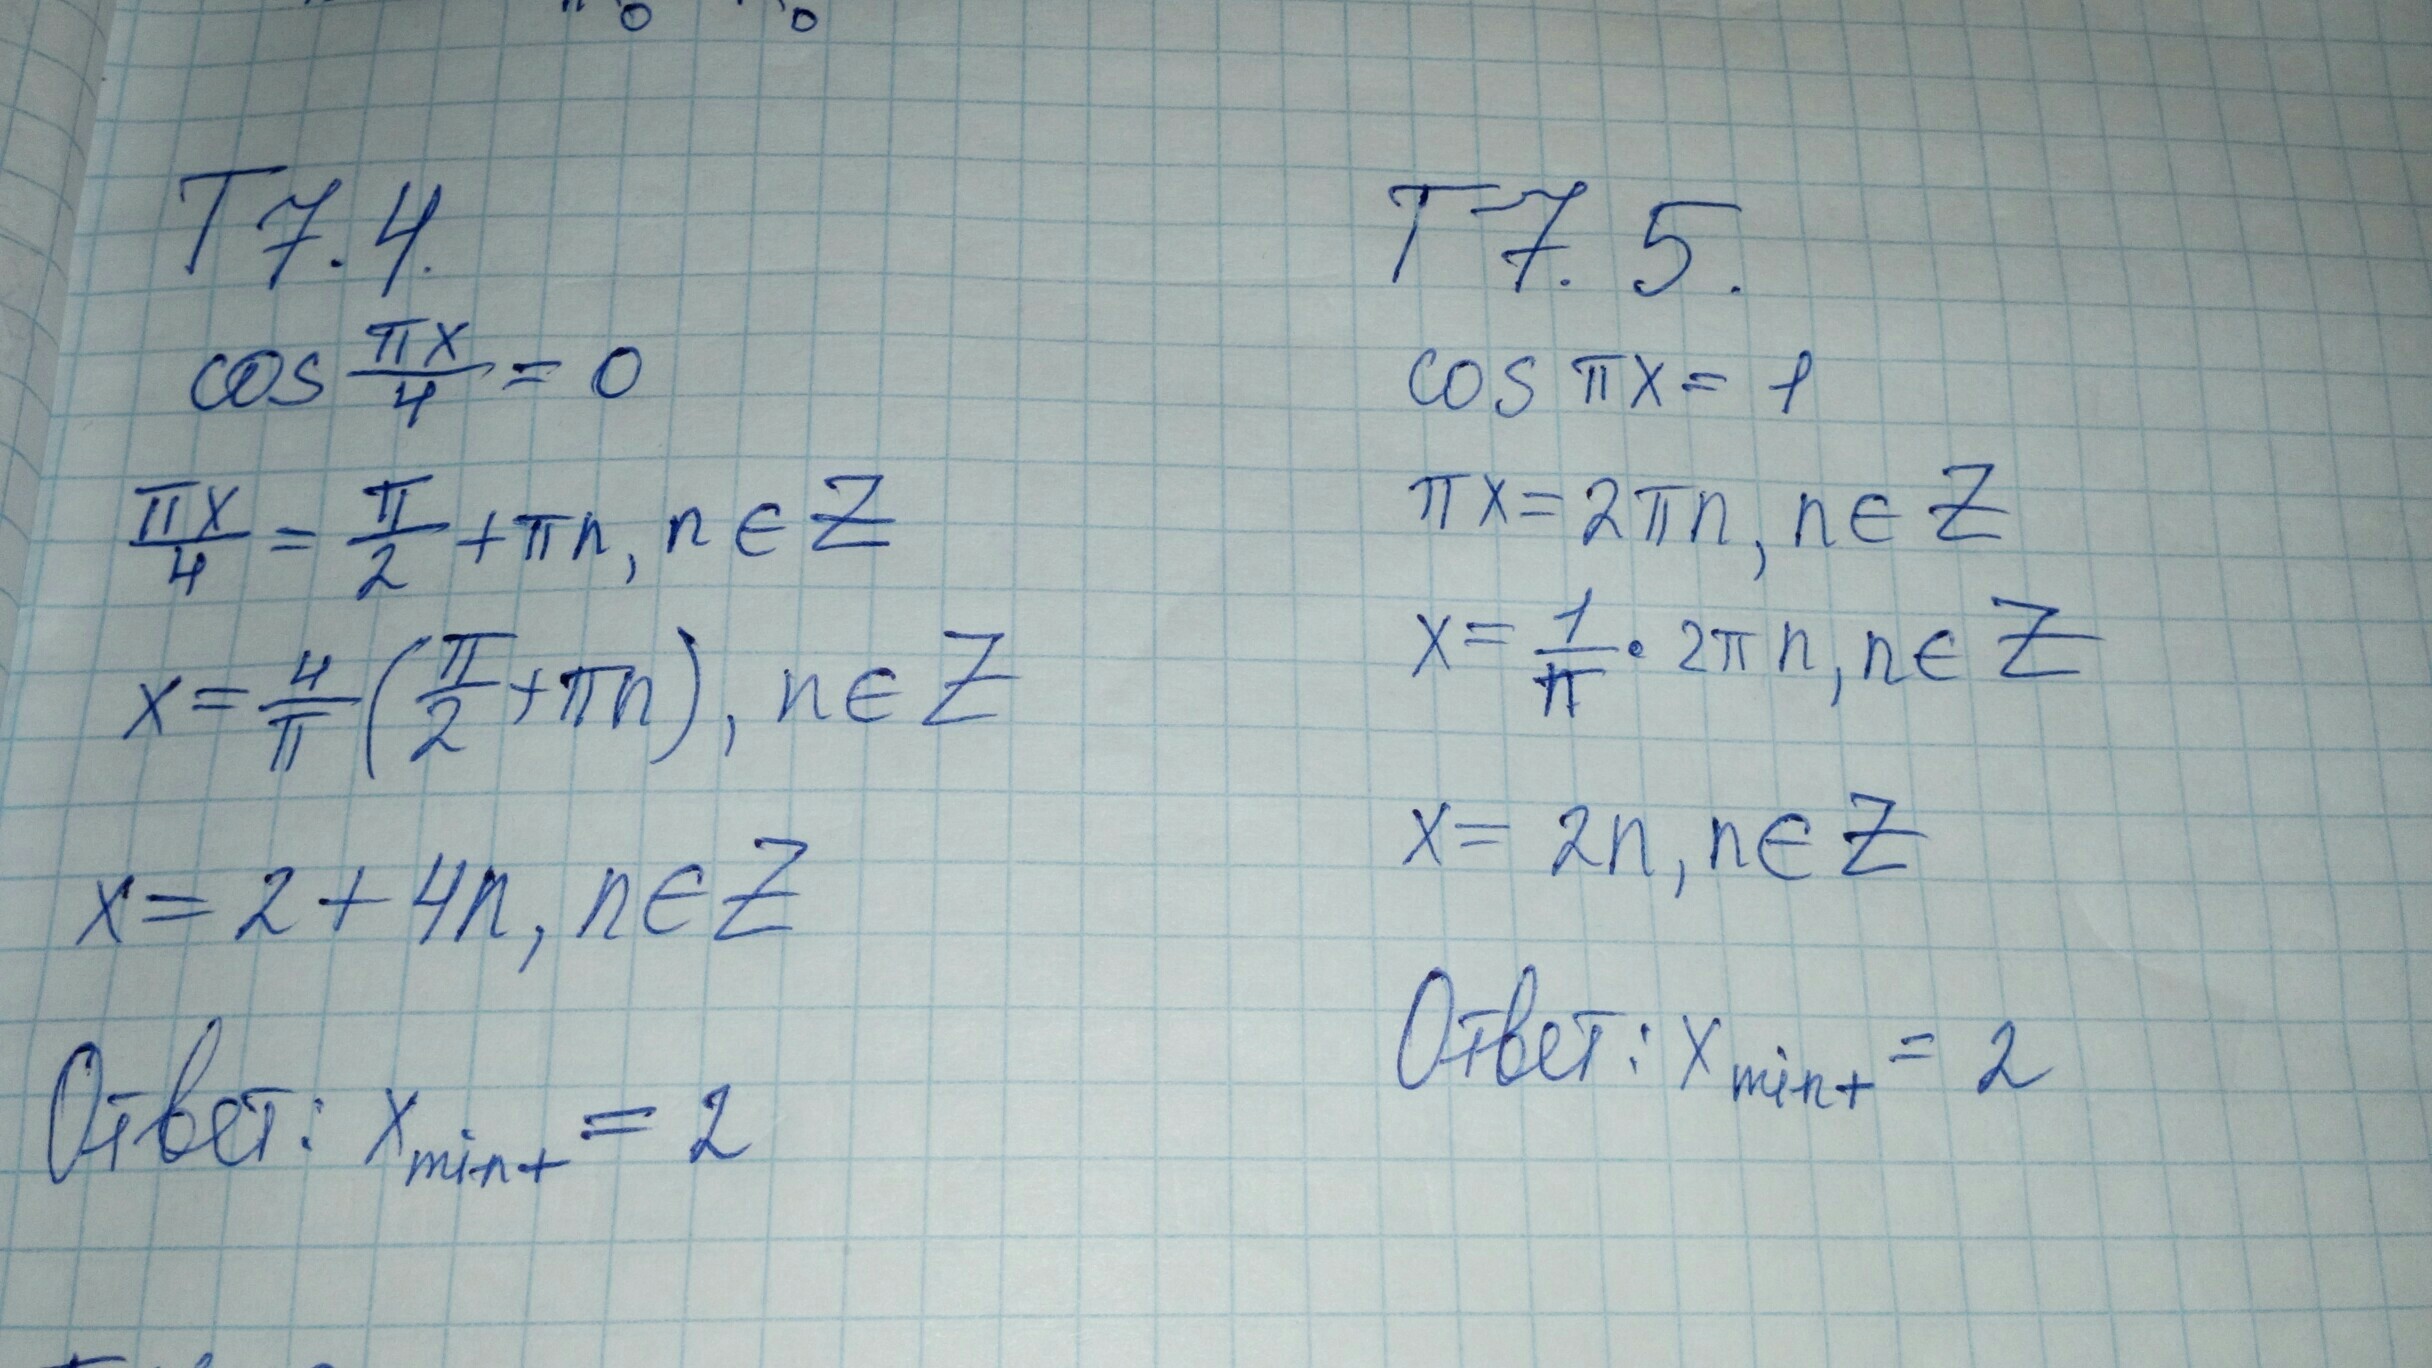 T7.4.
cos πx/4 = 0
πx/4 = π/2 + πn, n ∈ Z
x = 4/π (π/2 + πn), n ∈ Z
x = 2 + 4n, n ∈ Z
Ответ: x_min+ = 2
T7.5.
cos πx = 1
πx = 2πn, n ∈ Z
x = 1/π · 2πn, n ∈ Z
x = 2n, n ∈ Z
Ответ: x_min+ = 2